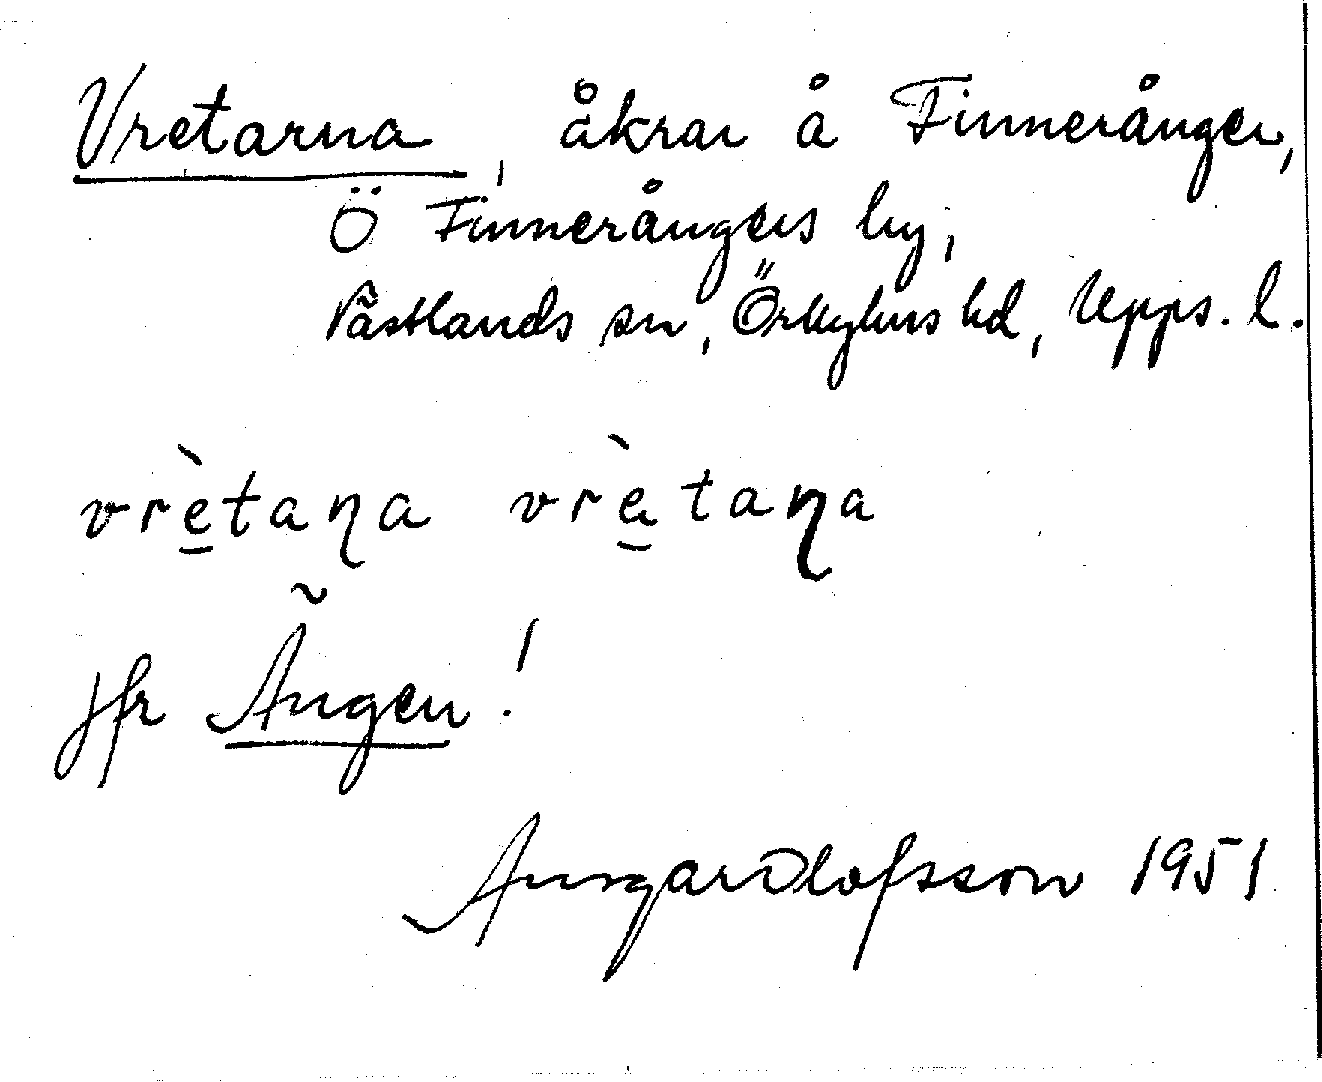 Vretarna, åkrar å Finneränger,
Ö Finnerångers by,
Västlands sn, Örbyhus hd, Upps. l.
vrètaɳa vrètaɳa
jfr Ängen!
Ansgar Olofsson 1951